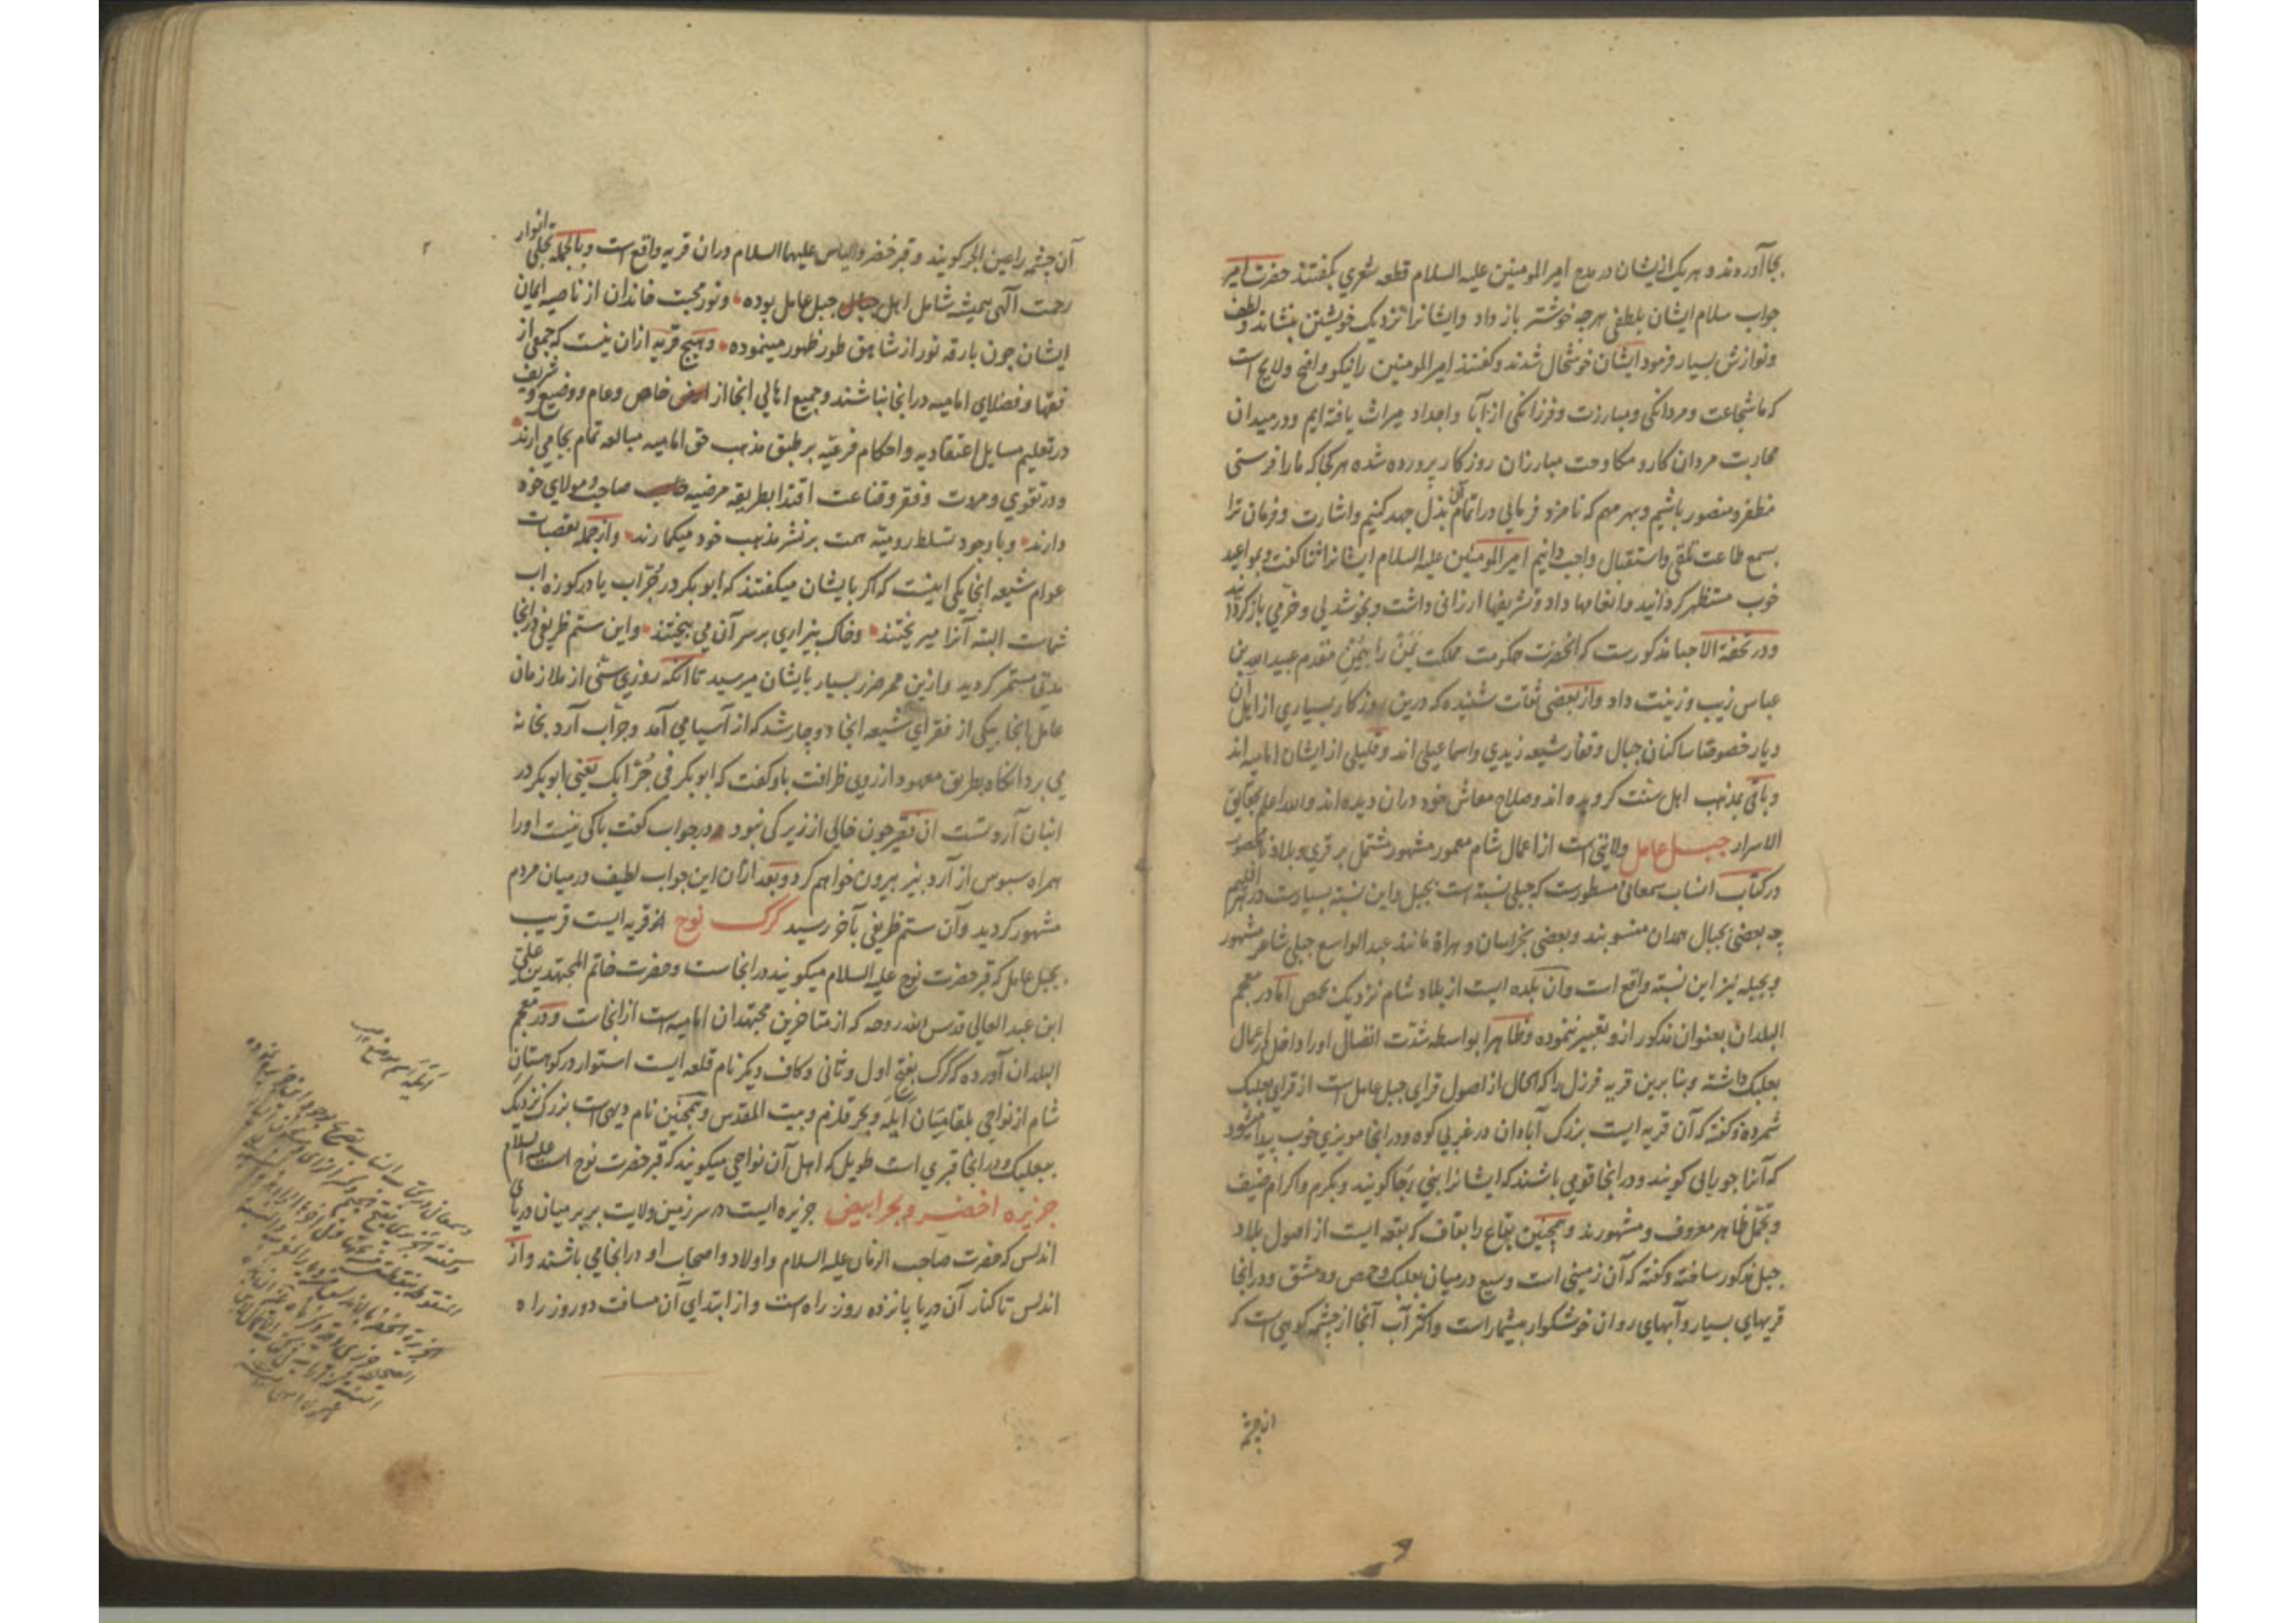 بجا آوردند و هر یک از ایشان در مدح امیر المومنین علیه السلام قطعه شعری بگفتند حضرت امیر
جواب سلام ایشان بلطفی هرچه خوشتر باز داد و ایشانرا نزدیک خویشتن بنشاند و لطف
و نوازش بسیار فرمود ایشان خوشحال شدند و گفتند امیر المومنین را نیکو واضح و لایح است
که ما شجاعت و مردانگی و مبارزت و فرزانگی از آبا و اجداد میراث یافته ایم و در میدان
محاربت مردان کار و مکاوحت مبارزان روزکار پرورده شده هر کجا که ما را فرستی
مظفر و منصور باشیم و بهر مهم که نامزد فرمایی در اتمام آن بذل جهد کنیم و اشارت و فرمان ترا
بسمع طاعت تلقی و استقبال واجب دانیم امیر المومنین علیه السلام ایشانرا ثنا گفت و بمواعید
خوب مستظهر گردانید و انعامها داد و تشریفها ارزانی داشت و بخوشدلی و خرمی باز گردانید
و در تحفة الاحبا مذکورست که آنحضرت حکومت مملکت یمن را بیمن مقدم عبید الله بن
عباس زیب و زینت داد و از بعضی ثقات شنیده که درین روزکار بسیاری از اهل آن
دیار خصوصا ساکنان جبال و قفار شیعه زیدی و اسماعیلی اند و قلیلی از ایشان امامیه اند
و باقی بمذهب اهل سنت گرویده اند و صلاح معاش خود دران دیده اند والله اعلم بحقایق
الاسرار جبل عامل ولایتی است از اعمال شام معمور مشهور مشتمل بر قری و بلاد نامحصور
در کتاب انساب سمعانی مسطورست که جبلی نسبة است بجبل و این نسبة بسیارست در اقلیم
چه بعضی بجبال همدان منسوبند و بعضی بخراسان و هراة مانند عبد الواسع جبلی شاعر مشهور
و بجبله نیز این نسبة واقع است و آن بلده ایست از بلاد شام نزدیک بحمص اما در معجم
البلدان بعنوان مذکور ازو تعبیر ننموده و ظاهرا بواسطه شدت اتصال او را داخل اعمال
بعلبک داشته و بنا برین قریه فرزل را که الحال از اصول قرای جبل عامل است از قرای بعلبک
شمرده و گفته که آن قریه ایست بزرک آبادان در غربی کوه و در انجا مویزی خوب پیدا میشود
که آنرا جوربانی کویند و در انجا قومی باشند که ایشانرا بنی رجا کویند و بکرم و اکرام ضیف
و تجمل ظاهر معروف و مشهورند و همچنین بقاع را بقاف که بقعه ایست از اصول بلاد
جبل مذکور ساخته و گفته که آن زمینی است وسیع در میان بعلبک و حمص و دمشق و در انجا
قریهای بسیار و آبهای روان خوشکوار بیشمار است و اکثر آب آنجا از چشمه کوهی است که
آن چشمه
آن چشمه را عین الجر کویند و قبر خضر و الیاس علیهما السلام دران قریه واقع است و بالجمله تجلی انوار
رحمت آلهی همیشه شامل اهل جبل عامل بوده و نور محبت خاندان از ناصیه ایمان
ایشان چون بارقه نور از شاهق طور ظهور مینموده و هیچ قریه ازان نیست که جمعی از
فقها و فضلای امامیه در انجا نباشند و جمیع اهالی انجا از خاص و عام و وضیع و شریف
در تعلیم مسایل اعتقادیه و احکام فرعیه بر طبق مذهب حق امامیه مبالغه تمام بجا می آرند
و در تقوی و مروت و فقر و قناعت اقتدا بطریقه مرضیه صاحب و مولای خود
دارند و با وجود تسلط رومیه همت بر نشر مذهب خود میکمارند و از جمله تعصبات
عوام شیعه انجا یکی اینست که اگر بایشان میکفتند که ابو بکر در جراب یا در کوزه آب
شماست البته آنرا میریختند و خاک بیزاری بر سر آن می بیختند و این ستم ظریفی در انجا
مدتی مستمر کردید و ازین ممر ضرر بسیار بایشان میرسید تا آنکه روزی سنی از ملازمان
عامل انجا بیکی از فقرای شیعه انجا دوچار شد که از آسیا می آمد و جراب آرد بخانه
می برد انکاه بطریق معهود از روی ظرافت باو کفت که ابو بکر فی جرابک یعنی ابو بکر در
انبان آرد تست ان فقیر چون خالی از زیرکی نبود در جواب کفت باکی نیست او را
همراه سبوس از آرد بیز بیرون خواهم کرد و بعد ازان این جواب لطیف در میان مردم
مشهور کردید و آن ستم ظریفی بآخر رسید کرک نوح قریه ایست قریب
بجبل عامل که قبر حضرت نوح علیه السلام میکویند در انجاست و حضرت خاتم المجتهدین علی
ابن عبد العالی قدس الله روحه که از متاخرین مجتهدان امامیه است از انجاست و در معجم
البلدان آورده که کرک بفتح اول و ثانی و کاف دیکر نام قلعه ایست استوار در کوهستان
شام از نواحی بلقا میان ایله و بحر قلزم و بیت المقدس و همچنین نام دیهی است بزرک نزدیک
ببعلبک و در انجا قبری است طویل که اهل آن نواحی میکویند که قبر حضرت نوح است علیه السلام
جزیره اخضر و بحر ابیض جزیره ایست در سر زمین ولایت بربر میان دریای
اندلس که حضرت صاحب الزمان علیه السلام و اولاد و اصحاب او در انجا می باشند و از
اندلس تا کنار آن دریا پانزده روز راه است و از ابتدای آن مسافت دو روز راه